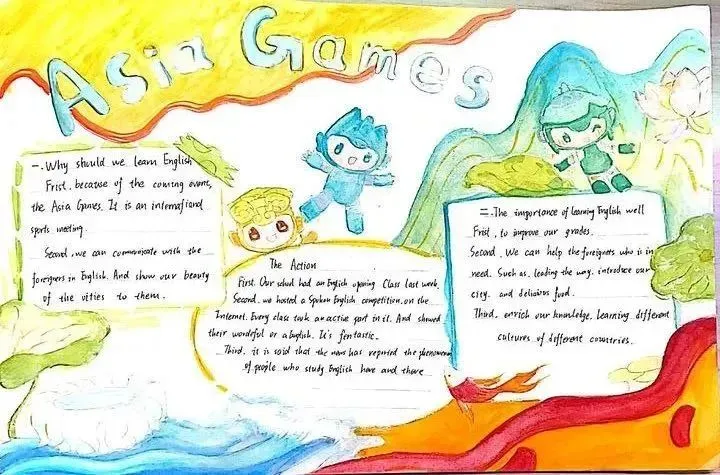 Asia Games
一. Why should we learn English
Frist, because of the coming event,
the Asia Games. It is an internatiand
sports meeting.
Second, we can commenicate with the
foreigners in English. And show our beauty
of the vities to them.
The Action
First. Our school had an English opening Class last week.
Second. we hosted a Spoken English competition on the
Internet. Every class took an active part in it. And showed
their wordeful or abuglish. It's fentastic.
Third, it is said that the news has repirted the phenomenon
of people who study English here and there
二. The importance of learning English well
Frist, to improve our grades.
Second. We can help the foreigners who is in
need. Such as, leading the way, introduce our
city. and delicious food.
Third, enrich our knowledge. Learning different
cultures of different countries.